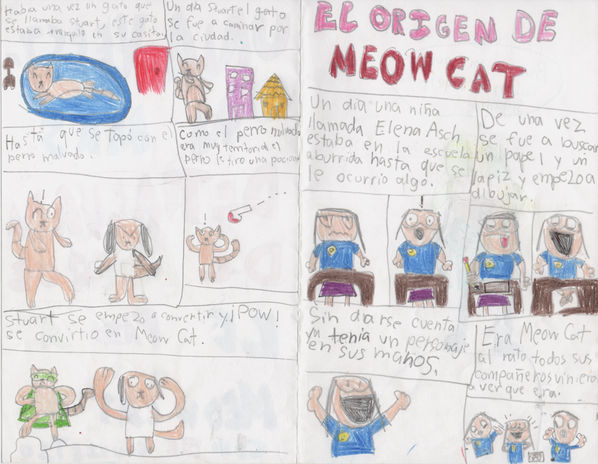 Había una vez un gato que
se llamaba Stuart, este gato
estaba tranquilo en su casita.
Un día Stuart el gato
se fue a caminar por
la ciudad.
Hasta que se topó con el
perro malvado.
Como el perro malvado
era muy territorial el
perro le tiro una pocion
Stuart se empezo a convertir y ¡POW!
se convirtio en Meow Cat.
EL ORIGEN DE
MEOW CAT
Un día una niña
llamada Elena Asch
estaba en la escuela
aburrida hasta que se
le ocurrio algo.
De una vez
se fue a buscar
un papel y un
lapiz y empezo a
dibujar.
Sin darse cuenta
ya tenia un personaje
en sus manos.
Era Meow Cat
al rato todos sus
compañeros vinieron
a ver que era.